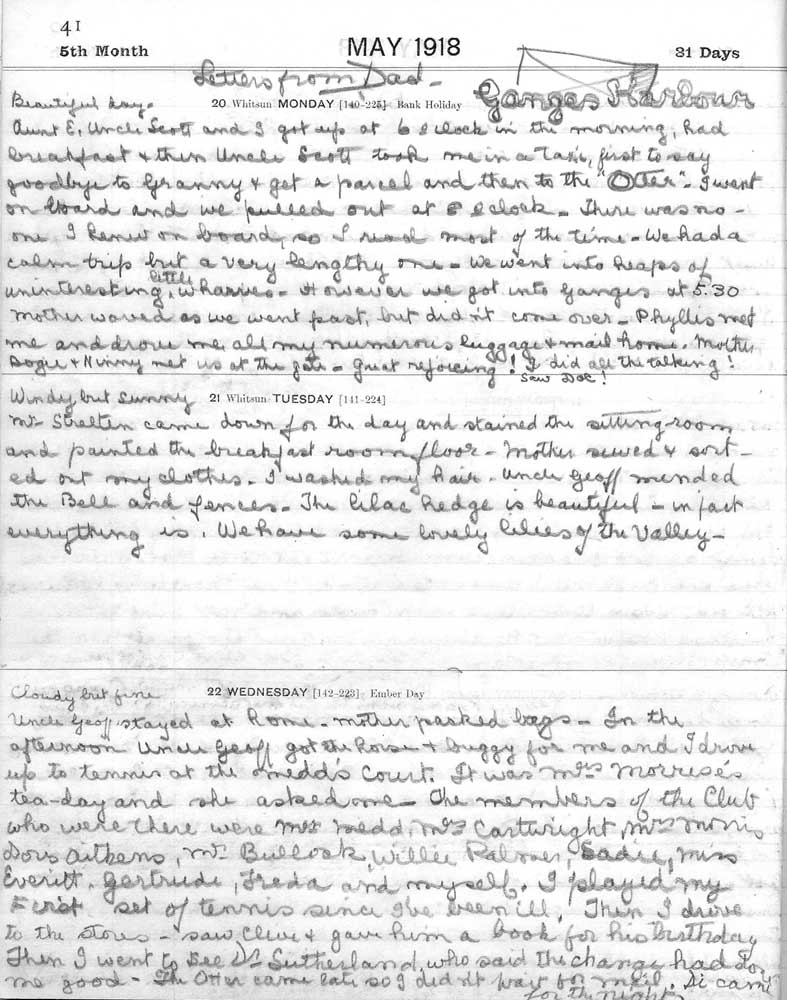 41
5th Month MAY 1918 31 Days
Letters from Dad -
Beautiful day. 20 Whitsun MONDAY [140-225] Bank Holiday Ganges Harbour
Aunt E, Uncle Scott and I got up at 6 o'clock in the morning, had
breakfast & then Uncle Scott took me in a taxi, first to say
goodbye to Granny & get a parcel and then to the "Otter". I went
on board and we pulled out at 8 o'clock - There was no-
one I knew on board, so I read most of the time - We had a
calm trip but a very lengthy one - We went into heaps of
uninteresting, little wharves - However we got into Ganges at 5.30
Mother waved as we went past, but didn't come over - Phyllis met
me and drove me, all my numerous luggage & mail home. Mother
& Ninny met us at the gate - great rejoicing! I did all the talking!
Saw Doc!
Windy but sunny 21 Whitsun TUESDAY [141-224]
Mr came down for the day and stained the sitting-room
and painted the breakfast room floor - Mother sewed & sort-
ed out my clothes - I washed my hair - Uncle Geoff mended
the Bell and fences - The lilac hedge is beautiful - in fact
everything is. We have some lovely lilies of the Valley -
Cloudy but fine 22 WEDNESDAY [142-223] Ember Day
Uncle Geoff stayed at home - mother packed bags - In the
afternoon Uncle Geoff got the horse & buggy for me and I drove
up to tennis at the court. It was Mrs Morris's
tea-day and she asked me - The members of the Club
who were there were Mrs Cartwright, Mrs Morris
Dors Aitkens, Mr Bullock, Willie Palmer, Sadie, Miss
Everitt, Gertrude, Freda and myself. I played my
First set of tennis since I've been ill, Then I drove
to the stores - saw Clive & gave him a book for his birthday
Then I went to see Dr Sutherland, who said the change had do
me good - The Otter came late so I didn't wait for mail. Di came
for the night